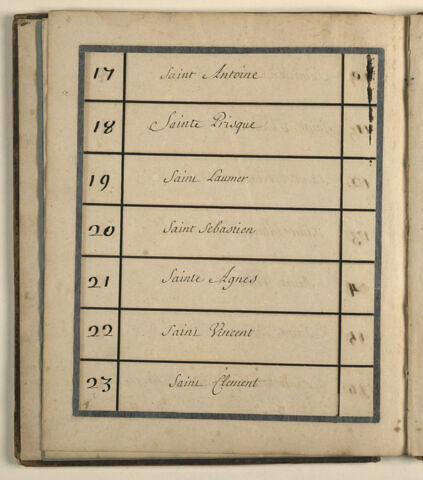 17 Saint Antoine
18 Sainte Prisque
19 Saint Laumer
20 Saint Sebastien
21 Sainte Agnes
22 Saint Vincent
23 Saint Clement